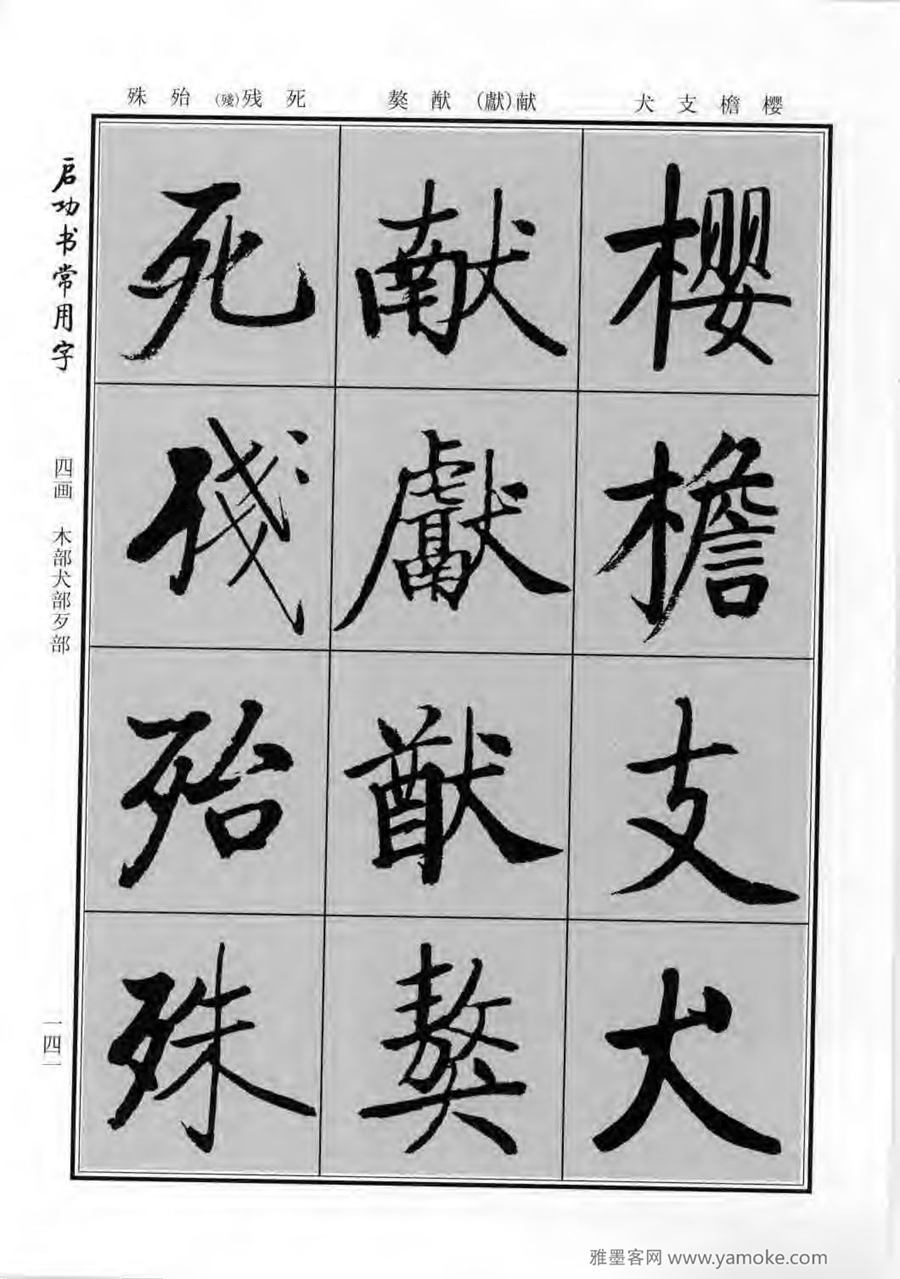 犬 支 檐 樱
獒 猷 (獻)献
殊 殆 (殘)残 死
樱
檐
支
犬
献
獻
猷
獒
死
残
殆
殊
启功书常用字
四画 木部犬部歹部
一四一
雅墨客网 www.yamoke.com